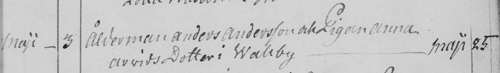 Maji – 3 Ålderman anders andersson ock Pigan anna
arvids Dotter i Walby – Maji 25